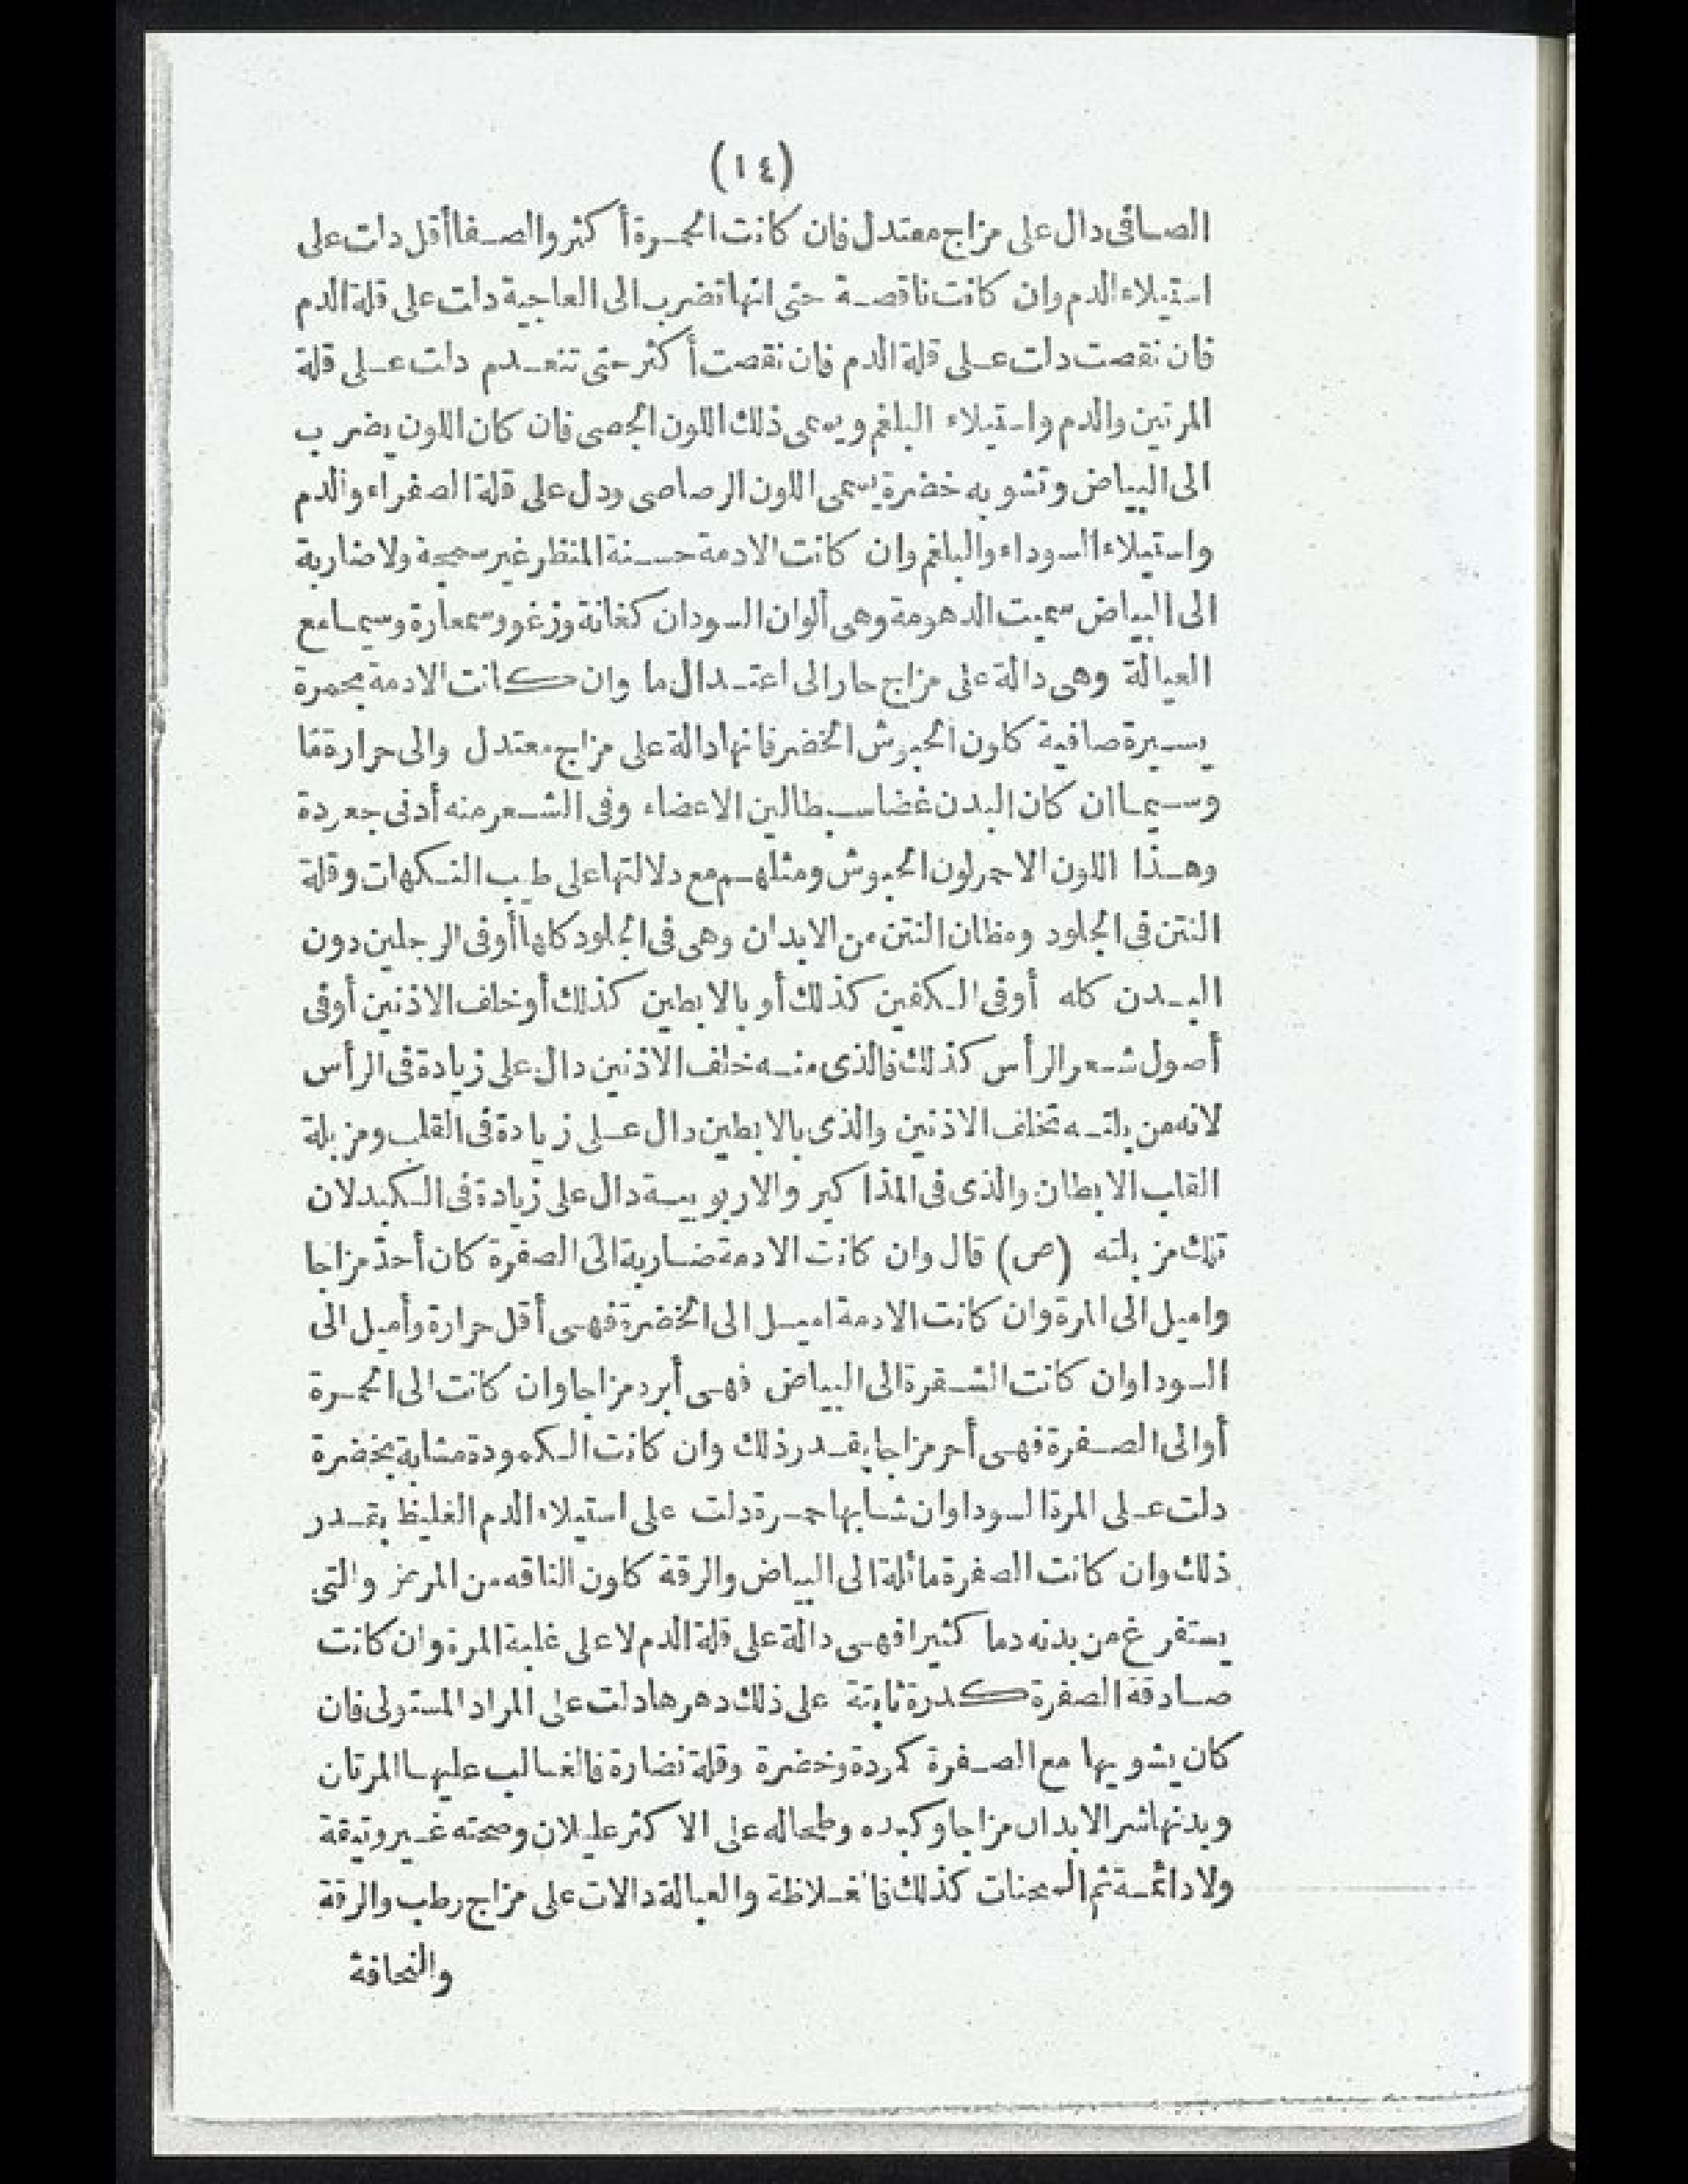 (١٤)
الصافى دال على مزاج معتدل فان كانت الحمرة أكثر والصفا أقل دلت على
استيلاء الدم وان كانت ناقصة حتى انها تضرب الى العاجية دلت على قلة الدم
فان نقصت دلت على قلة الدم فان نقصت أكثر حتى تنعدم دلت على قلة
المرتين والدم واستيلاء البلغم ويسمى ذلك اللون الجصى فان كان اللون يضرب
الى البياض وتشوبه خضرة يسمى اللون الرصاصى ودل على قلة الصفراء والدم
واستيلاء السوداء والبلغم وان كانت الادمة حسنة المنظر غير سمجة ولا ضاربة
الى البياض سميت الدهومة وهى ألوان السودان كغانة وزغو وسمعارة وسيما مع
العبالة وهى دالة على مزاج حار الى اعتدال ما وان كانت الادمة بحمرة
يسيرة صافية كلون الحبوش الخضر فانها دالة على مزاج معتدل والى حرارة مّا
وسيما ان كان البدن غضا سبطا لين الاعضاء وفى الشعر منه أدنى جعودة
وهذا اللون الاحمر لون الحبوش ومثلهم مع دلالتها على طيب النكهات وقلة
النتن فى الجلود ومظان النتن من الابدان وهى فى الجلود كلها أوفى الرجلين دون
البدن كله أوفى الكفين كذلك أو بالابطين كذلك أو خلف الاذنين أوفى
أصول شعر الرأس كذلك فالذى منه خلف الاذنين دال على زيادة فى الرأس
لانه من بلته تخلف الاذنين والذى بالابطين دال على زيادة فى القلب ومزبلة
القلب الابطان والذى فى المذاكير والاربوبية دال على زيادة فى الكبد لان
تلك مزبلته (ص) قال وان كانت الادمة ضاربة الى الصفرة كان أحدّ مزاجا
واميل الى المرة وان كانت الادمة اميل الى الخضرة فهى أقل حرارة وأميل الى
السودا وان كانت الشقرة الى البياض فهى أبرد مزاجا وان كانت الى الحمرة
أوالى الصفرة فهى أحر مزاجا بقدر ذلك وان كانت الكمودة مشابة بخضرة
دلت على المرة السودا وان شابها حمرة دلت على استيلاء الدم الغليظ بقدر
ذلك وان كانت الصفرة مائلة الى البياض والرقة كلون الناقه من المرض والتى
يستفرغ من بدنه دما كثيرا فهى دالة على قلة الدم لا على غلبة المرة وان كانت
صادقة الصفرة كدرة ثابتة على ذلك دهرها دلت على المرار المستولى فان
كان يشوبها مع الصفرة كمودة وخضرة وقلة نضارة فالغالب عليها المرتان
وبدنها شر الابدان مزاجا وكبده وطحاله على الاكثر عليلان وصحته غير وثيقة
ولا دائمة ثم السحنات كذلك فالغلاظة والعبالة دالات على مزاج رطب والرقة
والنحافة